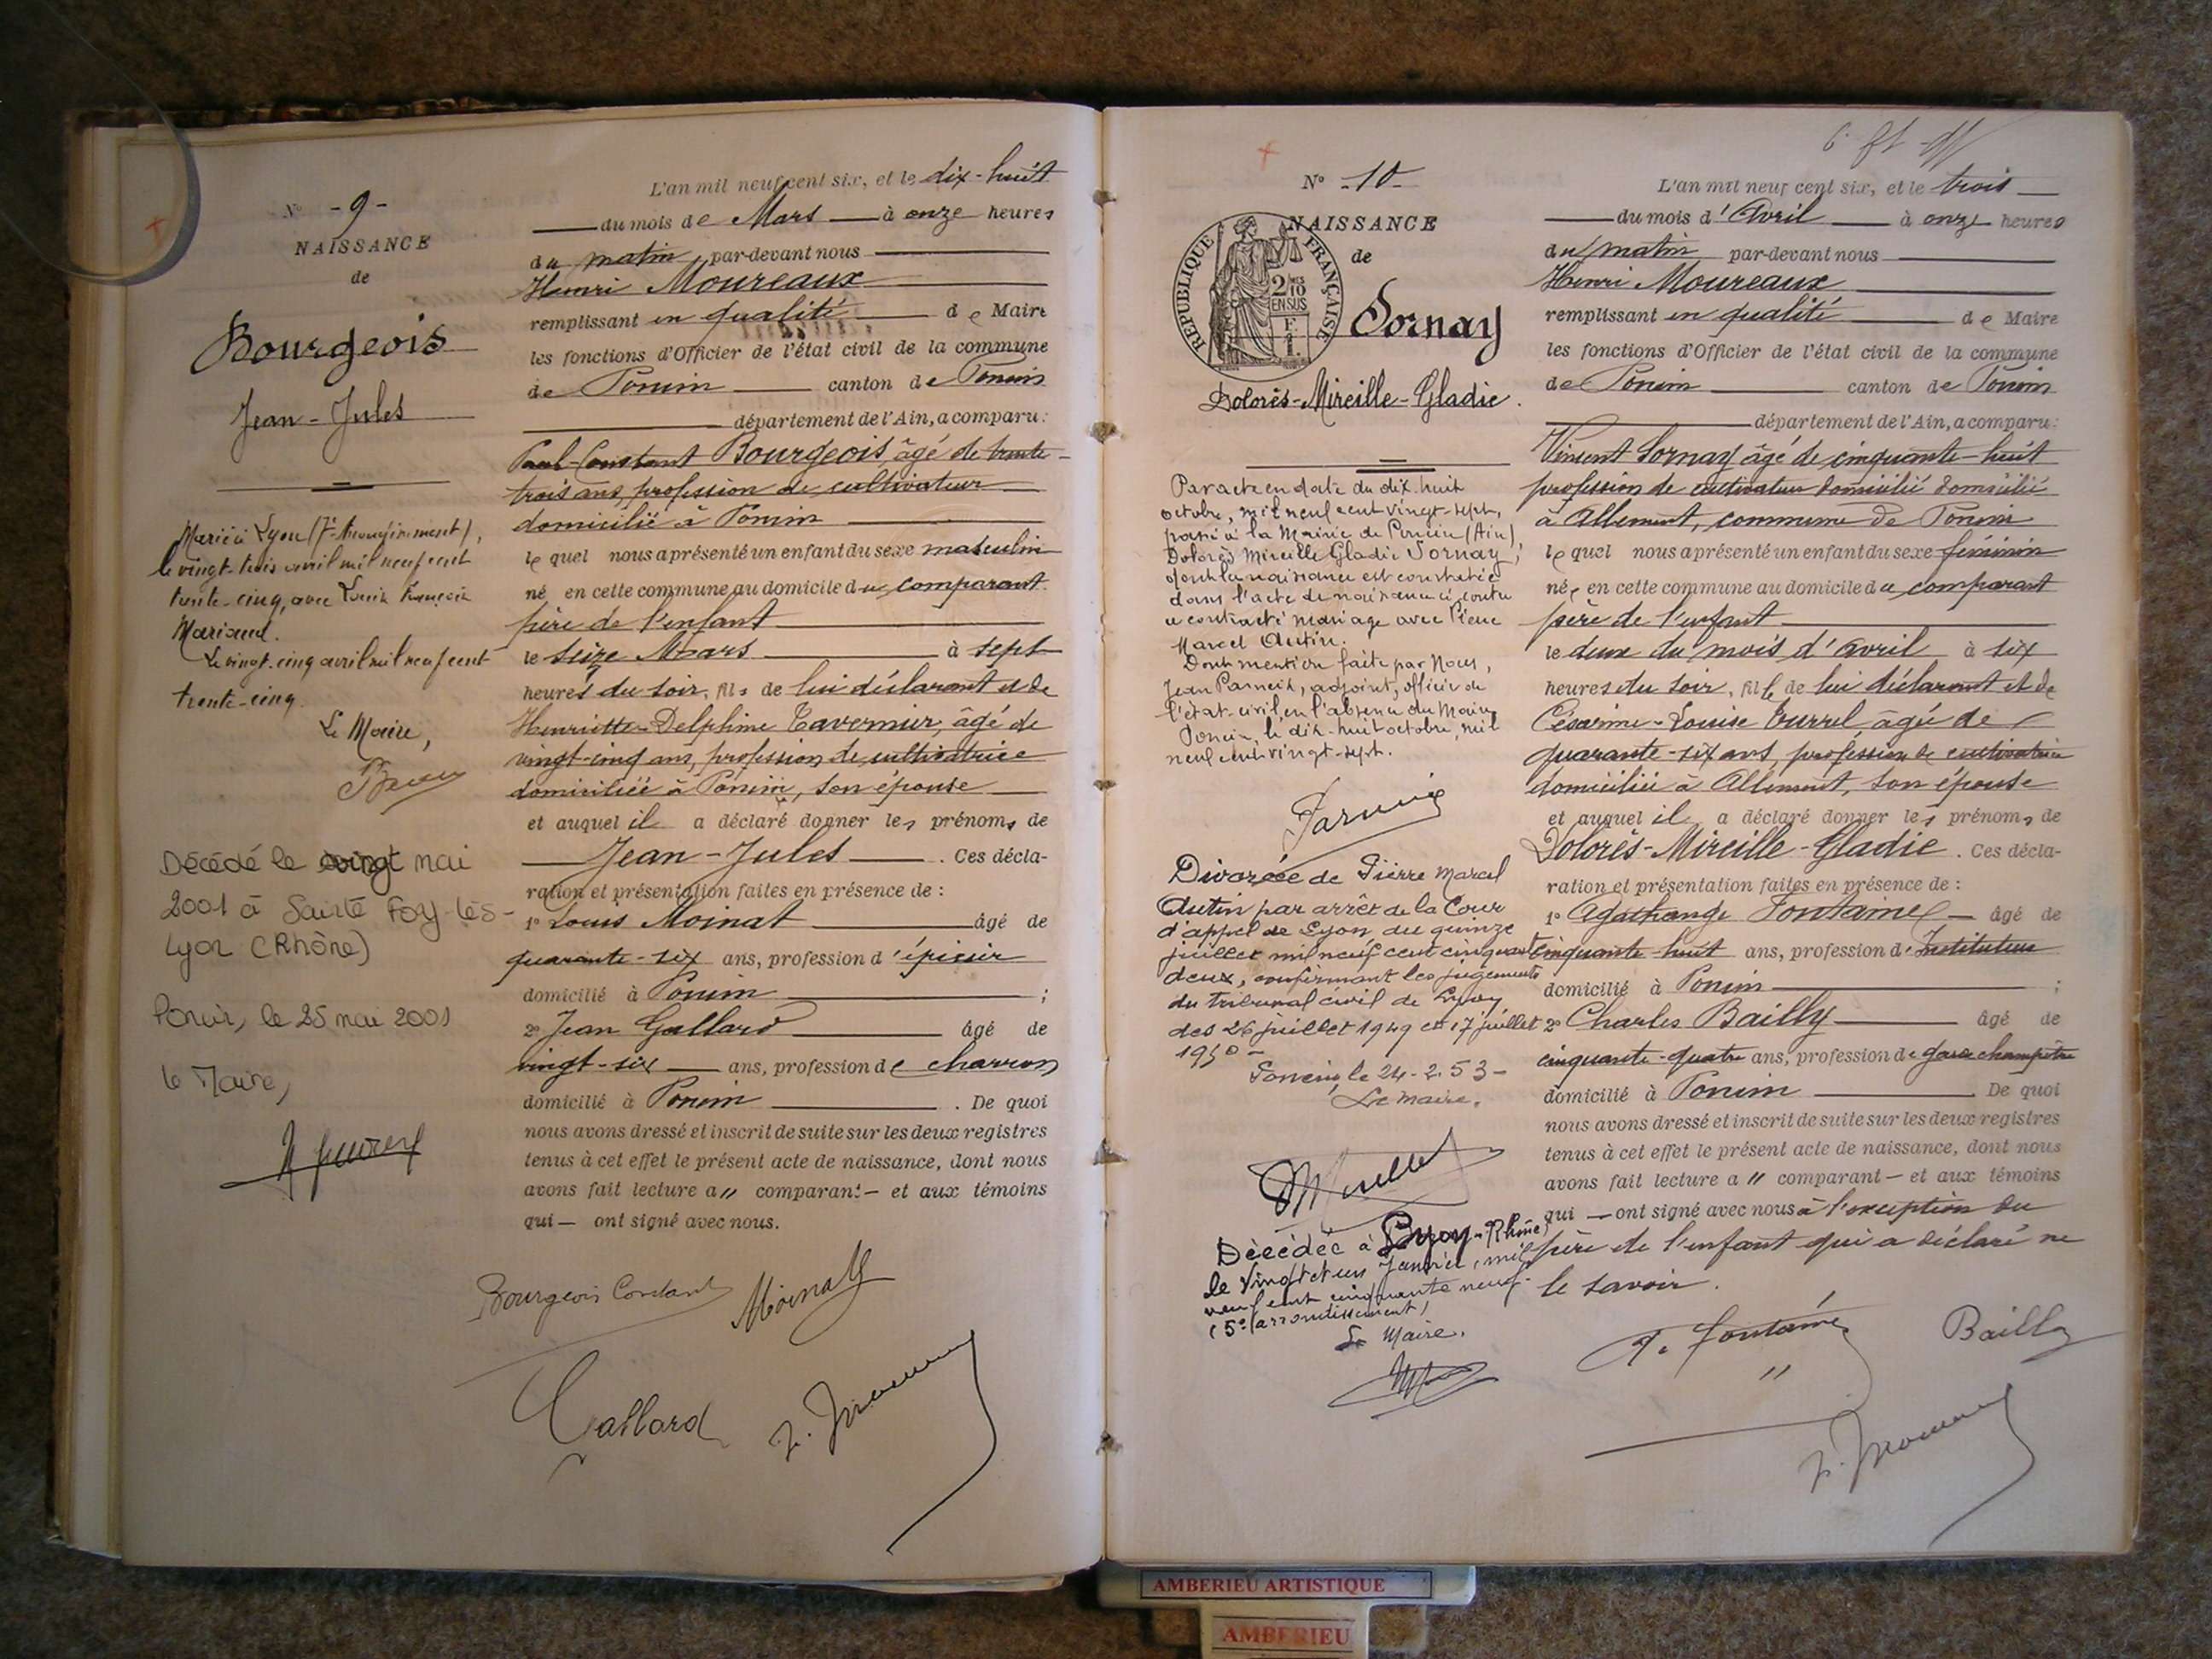 Nº - 9 -
NAISSANCE
de
Bourgeois
Jean-Jules
Marié à Lyon (7e Arrondissement),
le vingt-trois avril mil neuf cent
trente-cinq, avec Louise Françoise
Mariaud.
Le vingt-cinq avril mil neuf cent
trente-cinq.
Le Maire,
Décédé le vingt mai
2001 à Sainte Foy-lès-
Lyon (Rhône)
Poncin, le 25 mai 2001
Le Maire,
L'an mil neuf cent six, et le dix-huit
du mois de Mars à onze heures
du matin, par-devant nous
Henri Moureaux
remplissant en qualité de Maire
les fonctions d'Officier de l'état civil de la commune
de Poncin canton de Poncin
département de l'Ain, a comparu:
Paul-Constant Bourgeois, âgé de trente-
trois ans, profession de cultivateur
domicilié à Poncin
lequel nous a présenté un enfant du sexe masculin
né en cette commune au domicile du comparant
père de l'enfant
le seize Mars à sept
heures du soir, fils de lui déclarant et de
Henriette-Delphine Tavernier, âgé de
vingt-cinq ans, profession de cultivatrice
domiciliée à Poncin, son épouse
et auquel il a déclaré donner les prénoms de
Jean-Jules . Ces décla-
ration et présentation faites en présence de :
1º Louis Moinat âgé de
quarante-six ans, profession d'épicier
domicilié à Poncin ;
2º Jean Gallard âgé de
vingt-six ans, profession de charron
domicilié à Poncin . De quoi
nous avons dressé et inscrit de suite sur les deux registres
tenus à cet effet le présent acte de naissance, dont nous
avons fait lecture a " comparant - et aux témoins
qui — ont signé avec nous.
Bourgeois Constant Moinat
Gallard
Nº - 10 -
NAISSANCE
de
RÉPUBLIQUE FRANÇAISE
2/10
EN SUS
Sornay
Dolorès-Mireille-Gladie.
Par acte en date du dix-huit
octobre, mil neuf cent vingt-sept,
passé à la Mairie de Poncin (Ain),
Dolorès Mireille Gladie Sornay,
dont la naissance est constatée
dans l'acte de naissance ci contre
a contracté mariage avec Pierre
Marcel Autin.
Dont mention faite par Nous,
Jean adjoint, officier de
l'état-civil, en l'absence du Maire
Poncin, le dix-huit octobre, mil
neuf cent vingt-sept.
Divorcée de Pierre Marcel
Autin par arrêt de la Cour
d'appel de Lyon du quinze
juillet mil neuf cent cinquante
deux, confirmant les jugements
du tribunal civil de Lyon
des 26 juillet 1949 et 17 juillet
1950 -
Poncin, le 24-2.53-
Le maire.
Décédée à Lyon - Rhône,
le vingt et un Janvier, mil
neuf cent cinquante neuf.
(5e arrondissement)
Le Maire.
L'an mil neuf cent six, et le trois
du mois d'Avril à onze heures
du matin par-devant nous
Henri Moureaux
remplissant en qualité de Maire
les fonctions d'Officier de l'état civil de la commune
de Poncin canton de Poncin
département de l'Ain, a comparu:
Vincent Sornay âgé de cinquante-huit
profession de cultivateur domicilié domicilié
à Allement, commune de Poncin
lequel nous a présenté un enfant du sexe féminin
née en cette commune au domicile du comparant
père de l'enfant
le deux du mois d'avril à six
heures du soir, fille de lui déclarant et de
Césarine-Louise Turrel âgée de
quarante-six ans, profession de cultivatrice
domiciliée à Allement, son épouse
et auquel il a déclaré donner les prénoms de
Dolorès-Mireille-Gladie . Ces décla-
ration et présentation faites en présence de :
1º Agathange Fontaine âgé de
cinquante huit ans, profession d'Instituteur
domicilié à Poncin ;
2º Charles Bailly âgé de
cinquante-quatre ans, profession de garde champêtre
domicilié à Poncin . De quoi
nous avons dressé et inscrit de suite sur les deux registres
tenus à cet effet le présent acte de naissance, dont nous
avons fait lecture a " comparant — et aux témoins
qui — ont signé avec nous à l'exception du
père de l'enfant qui a déclaré ne
le savoir.
A. Fontaine Bailly
AMBERIEU ARTISTIQUE
AMBERIEU